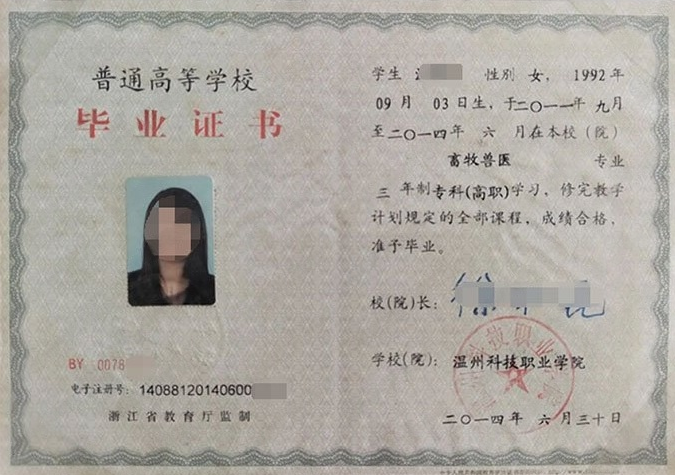 普通高等学校
毕业证书
BY 0078
电子注册号：14088120140600
浙江省教育厅监制
学生 性别 女，1992年
09月 03日生，于二〇一一年 九月
至二〇一四年 六 月在本校（院）
畜牧兽医 专业
三 年制专科(高职)学习，修完教学
计划规定的全部课程，成绩合格，
准予毕业。
校(院)长：徐
学校(院)：温州科技职业学院
二〇一四年 六月三十日